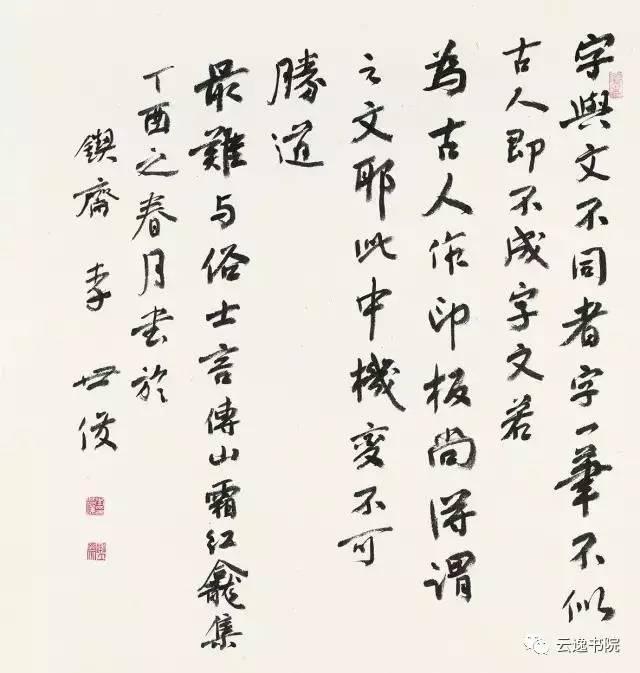 字與文不同者字一筆不似
古人即不成字文若
為古人作印板尚得謂
之文耶此中機變不可
勝道
最難与俗士言傅山霜红龕集
丁酉之春月书於
鍥齋 李世俊
云逸书院